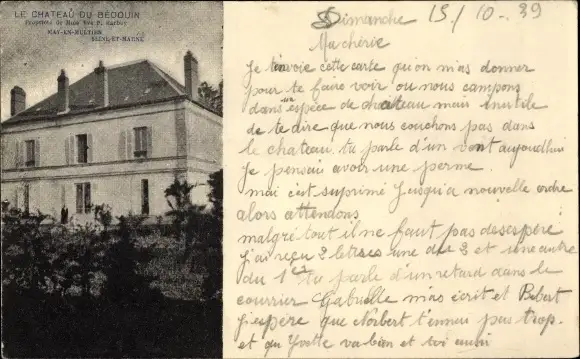 LE CHATEAU DU BEDOUIN
Propriété de Mme Vve P. Barboy
MAY-EN-MULTIEN
SEINE-ET-MARNE
Dimanche 15/10-39
Ma chérie
Je t'envoie cette carte qu'on m'as donner
pour te faire voir ou nous campons
dans une espece de chateau mais inutile
de te dire que nous couchons pas dans
le chateau tu parle d'un vent aujoudhui
Je pensai avoir une perme
mai c'est suprimé Jusqu'a nouvelle ordre
alors attendons
malgré tout il ne faut pas desespéré
J'ai reçu 2 letres une du 3 et une autre
du 1er tu parle d'un retard dans le
courrier Gabrielle m'as écrit et Bebert
J'espère que Norbert t'ennui pas trop
et qu Yvette va bien et toi aussi